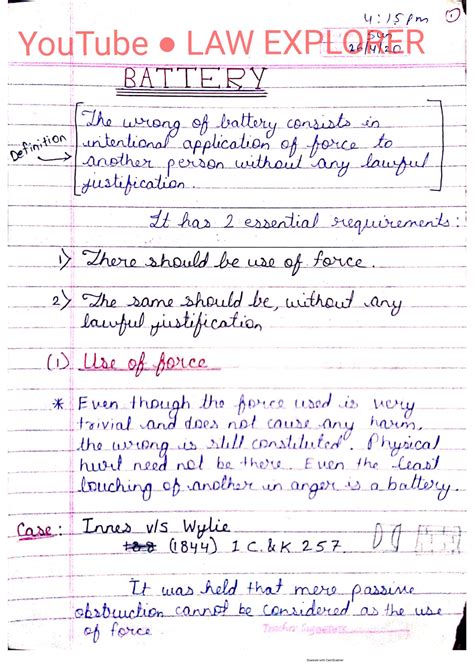 4:15pm
1
Sun
26/4/20
YouTube ● LAW EXPLORER
BATTERY
Definition
The wrong of battery consists in
intentional application of force to
another person without any lawful
justification.
It has 2 essential requirements:
1) There should be use of force.
2) The same should be, without any
lawful justification
(1) Use of force
* Even though the force used is very
trivial and does not cause any harm,
the wrong is still constituted. Physical
hurt need not be there. Even the least
touching of another in anger is a battery.
Case: Innes v/s Wylie
(1844) 1 C. & K 257.
It was held that mere passive
obstruction cannot be considered as the use
of force.
Teacher Signature
Scanned with CamScanner